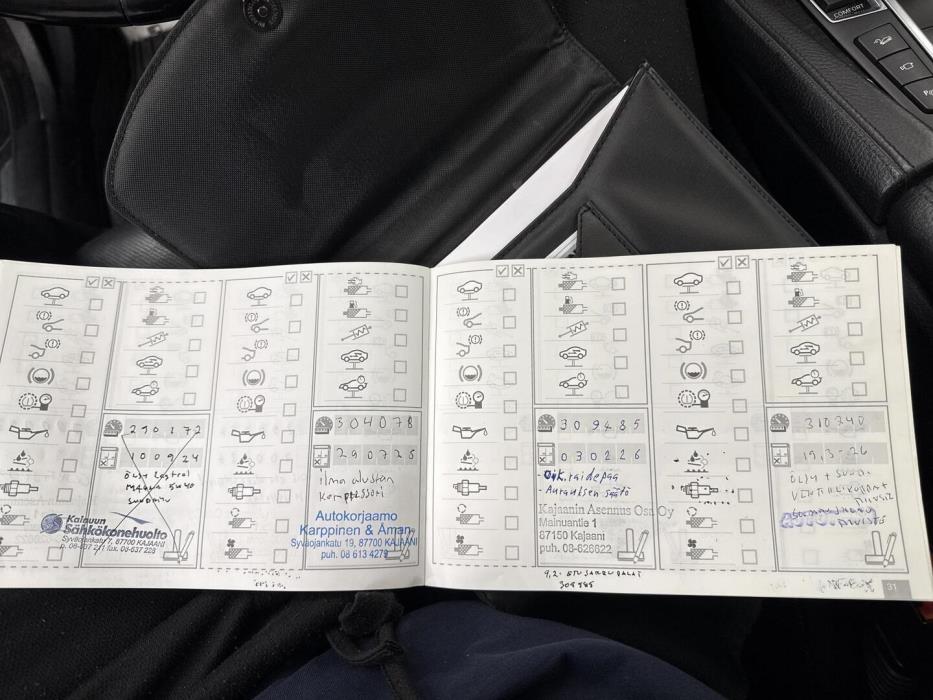 COMFORT
290172
100924
Öljy Castrol
Magna 5W40
suodatin
Kainuun
Sähkökonehuolto
Syväojankatu 7, 87700 KAJAANI
304078
290725
ilma alustan
kompressori
Autokorjaamo
Karppinen & Åman
Syväojankatu 19, 87700 KAJAANI
puh. 08 613 4279
309485
030226
Oik. raidepää
- Aurauksen säätö
Kajaanin Asennus Osa Oy
Mainuantie 1
87150 Kajaani
puh. 08-626622
9,2.
310740
19,3-26
ÖLJY + SUOD.
31